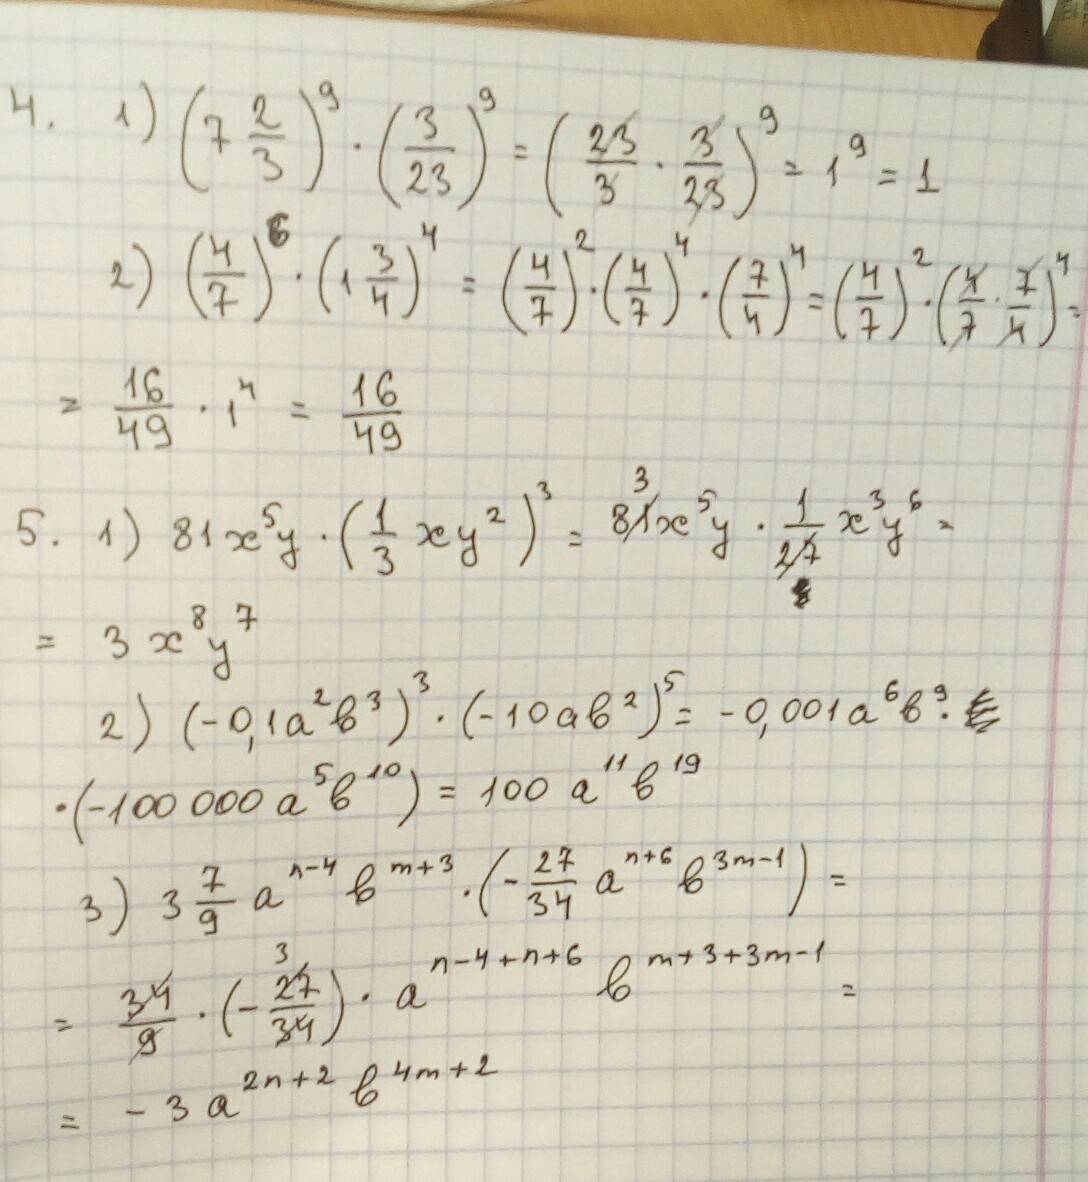 4. 1) (7 2/3)^9 · (3/23)^9 = (23/3 · 3/23)^9 = 1^9 = 1
2) (4/7)^6 · (1 3/4)^4 = (4/7)^2 · (4/7)^4 · (7/4)^4 = (4/7)^2 · (4/7 · 7/4)^4 =
= 16/49 · 1^4 = 16/49
5. 1) 81x^5y · (1/3 xy^2)^3 = 81^3x^5y · 1/27 x^3y^6 =
= 3x^8y^7
2) (-0,1a^2b^3)^3 · (-10ab^2)^5 = -0,001a^6b^9 ·
· (-100 000 a^5b^10) = 100 a^11 b^19
3) 3 7/9 a^(n-4) b^(m+3) · (- 27/34 a^(n+6) b^(3m-1)) =
= 34/9 · (- 27^3/34) · a^(n-4+n+6) b^(m+3+3m-1) =
= - 3a^(2n+2) b^(4m+2)